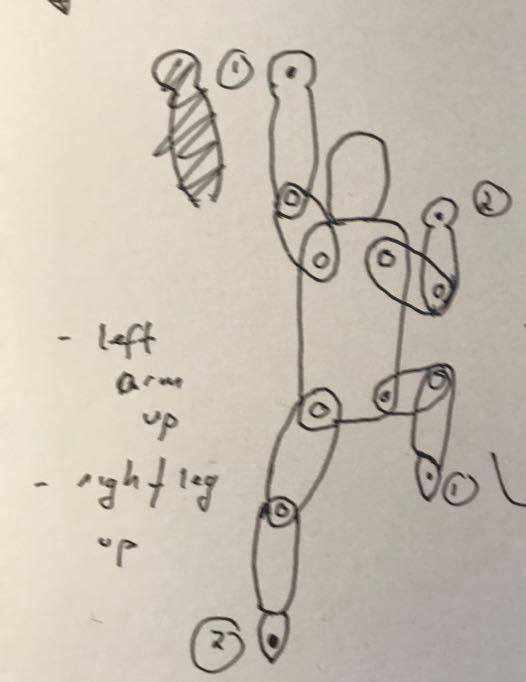 ①
②
- left
arm
up
- right leg
up
①
②